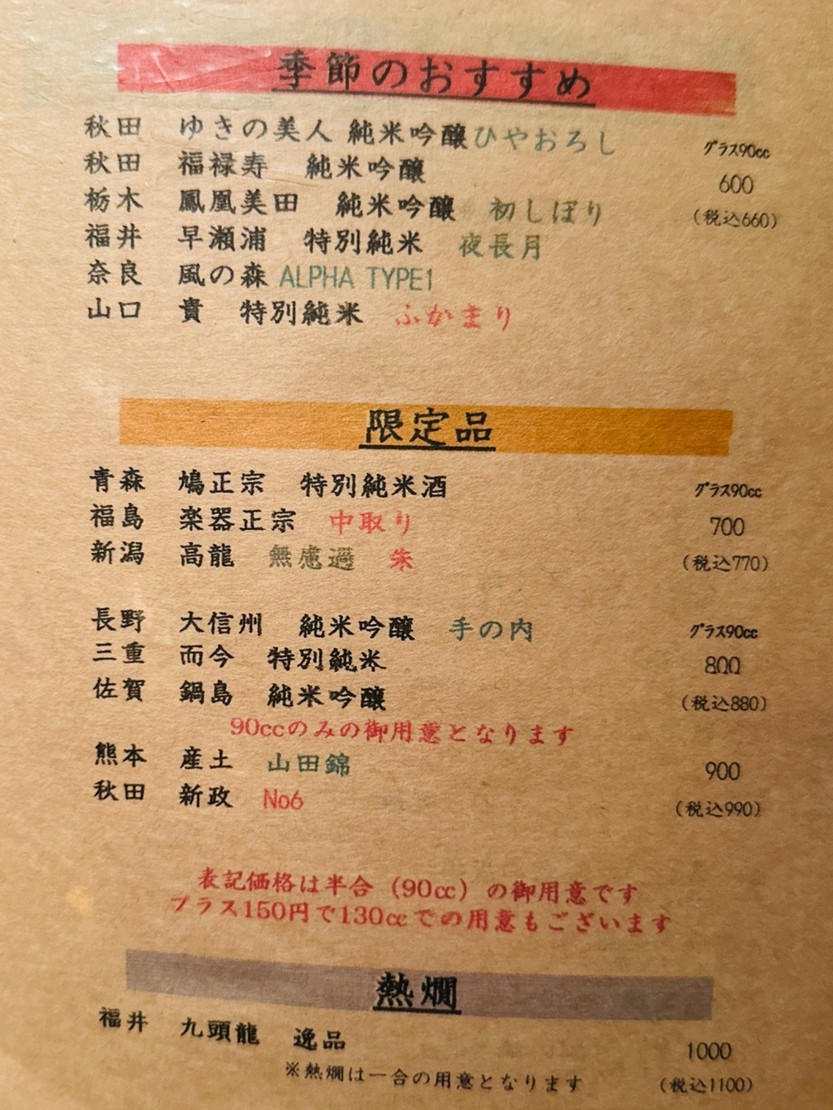 季節のおすすめ
秋田 ゆきの美人 純米吟醸 ひやおろし
グラス90cc
秋田 福禄寿 純米吟醸
600
栃木 鳳凰美田 純米吟醸 初しぼり
(税込660)
福井 早瀬浦 特別純米 夜長月
奈良 風の森 ALPHA TYPE1
山口 貴 特別純米 ふかまり
限定品
青森 鳩正宗 特別純米酒
グラス90cc
福島 楽器正宗 中取り
700
新潟 高龍 無慮過 朱
(税込770)
長野 大信州 純米吟醸 手の内
グラス90cc
三重 而今 特別純米
800
佐賀 鍋島 純米吟醸
(税込880)
90ccのみの御用意となります
熊本 産土 山田錦
900
秋田 新政 No6
(税込990)
表記価格は半合(90cc)の御用意です
プラス150円で130ccでの用意もございます
熱燗
福井 九頭龍 逸品
1000
※熱燗は一合の用意となります
(税込1100)